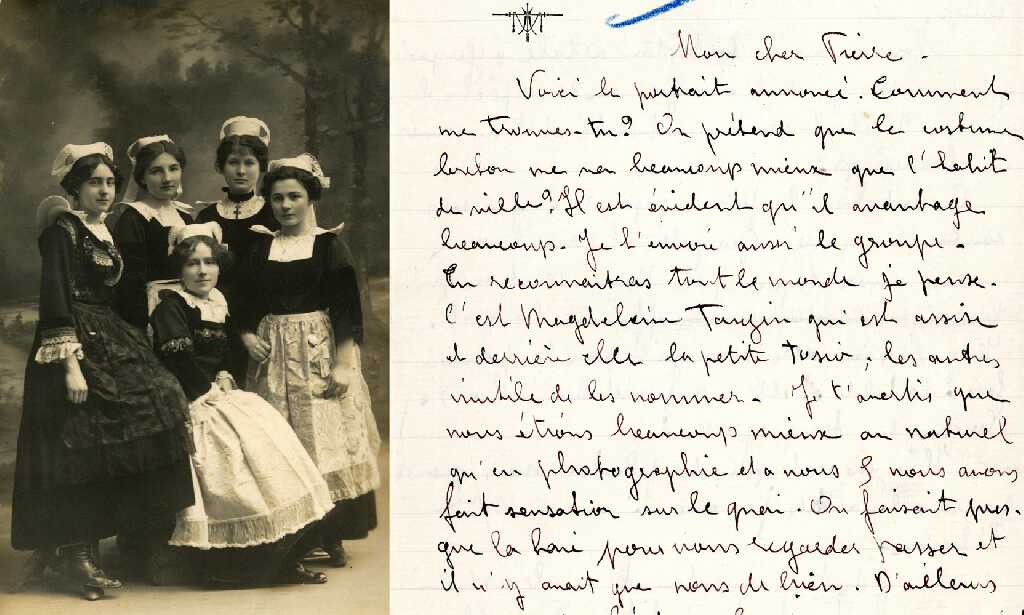 Mon cher Pierre.
Voici le portrait annoncé. Comment
me trouves-tu? On prétend que le costume
breton me va beaucoup mieux que l'habit
de ville? Il est évident qu'il avantage
beaucoup. Je t'envoie aussi le groupe.
Tu reconnaitras tout le monde je pense.
C'est Magdeleine Tauzin qui est assise
et derrière elle la petite ; les autres
inutile de les nommer. Je t'avertis que
nous étions beaucoup mieux au naturel
qu'en photographie et a nous 5 nous avons
fait sensation sur le quai. On faisait pres-
que la haie pour nous regarder passer et
il n'y avait que nous de bien. D'ailleurs